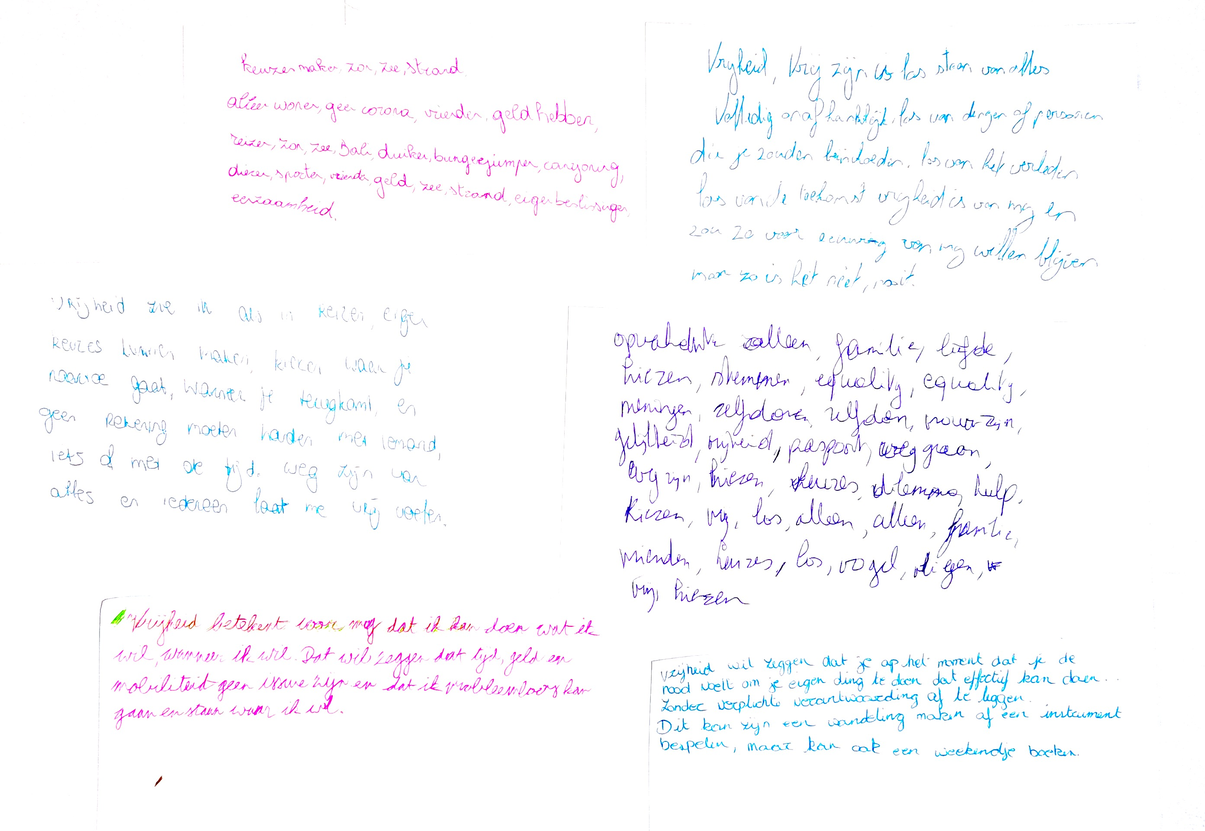 keuzes maken, zon, zee, strand
alleen wonen, geen corona, vrienden, geld hebben,
reizen, zon, zee, Bali, duiken, bungeejumpen, canyoning,
dieren, sporten, vrienden, geld, zee, strand, eigen beslissingen
eenzaamheid.
Vrijheid, Vrij zijn is los staan van alles
Volledig onafhankelijk, los van dingen of personen
die je zouden beinvloeden. los van het verleden
los van de toekomst vrijheid is van mij en
zou zo voor eeuwig van mij willen blijven
maar zo is het niet, nooit.
Vrijheid zie ik als in reizen, eigen
keuzes kunnen maken, kiezen waar je
naartoe gaat, wanneer je terugkomt, en
geen rekening moeten houden met iemand,
iets of met de tijd. weg zijn van
alles en iedereen laat me vrij voelen.
alleen, familie, liefde,
kiezen, stemmen, equality, equality,
meningen, zelf doen, zelf doen, puur zijn,
gelijkheid, vrijheid, paspoort, weg gaan,
weg zijn, kiezen, keuzes, dilemma, help,
kiezen, vrij, los, alleen, alleen, familie,
vrienden, keuzes, los, vogel, vliegen,
vrij, kiezen
Vrijheid betekent voor mij dat ik kan doen wat ik
wil, wanneer ik wil. Dat wil zeggen dat tijd, geld en
mobiliteid geen issue zijn en dat ik probleemloos kan
gaan en staan waar ik wil.
vrijheid wil zeggen dat je op het moment dat je de
nood voelt om je eigen ding te doen dat effectief kan doen...
Zonder verplichte verantwoording af te leggen.
Dit kan zijn een wandeling maken of een instrument
bespelen, maar kan ook een weekendje boeken.